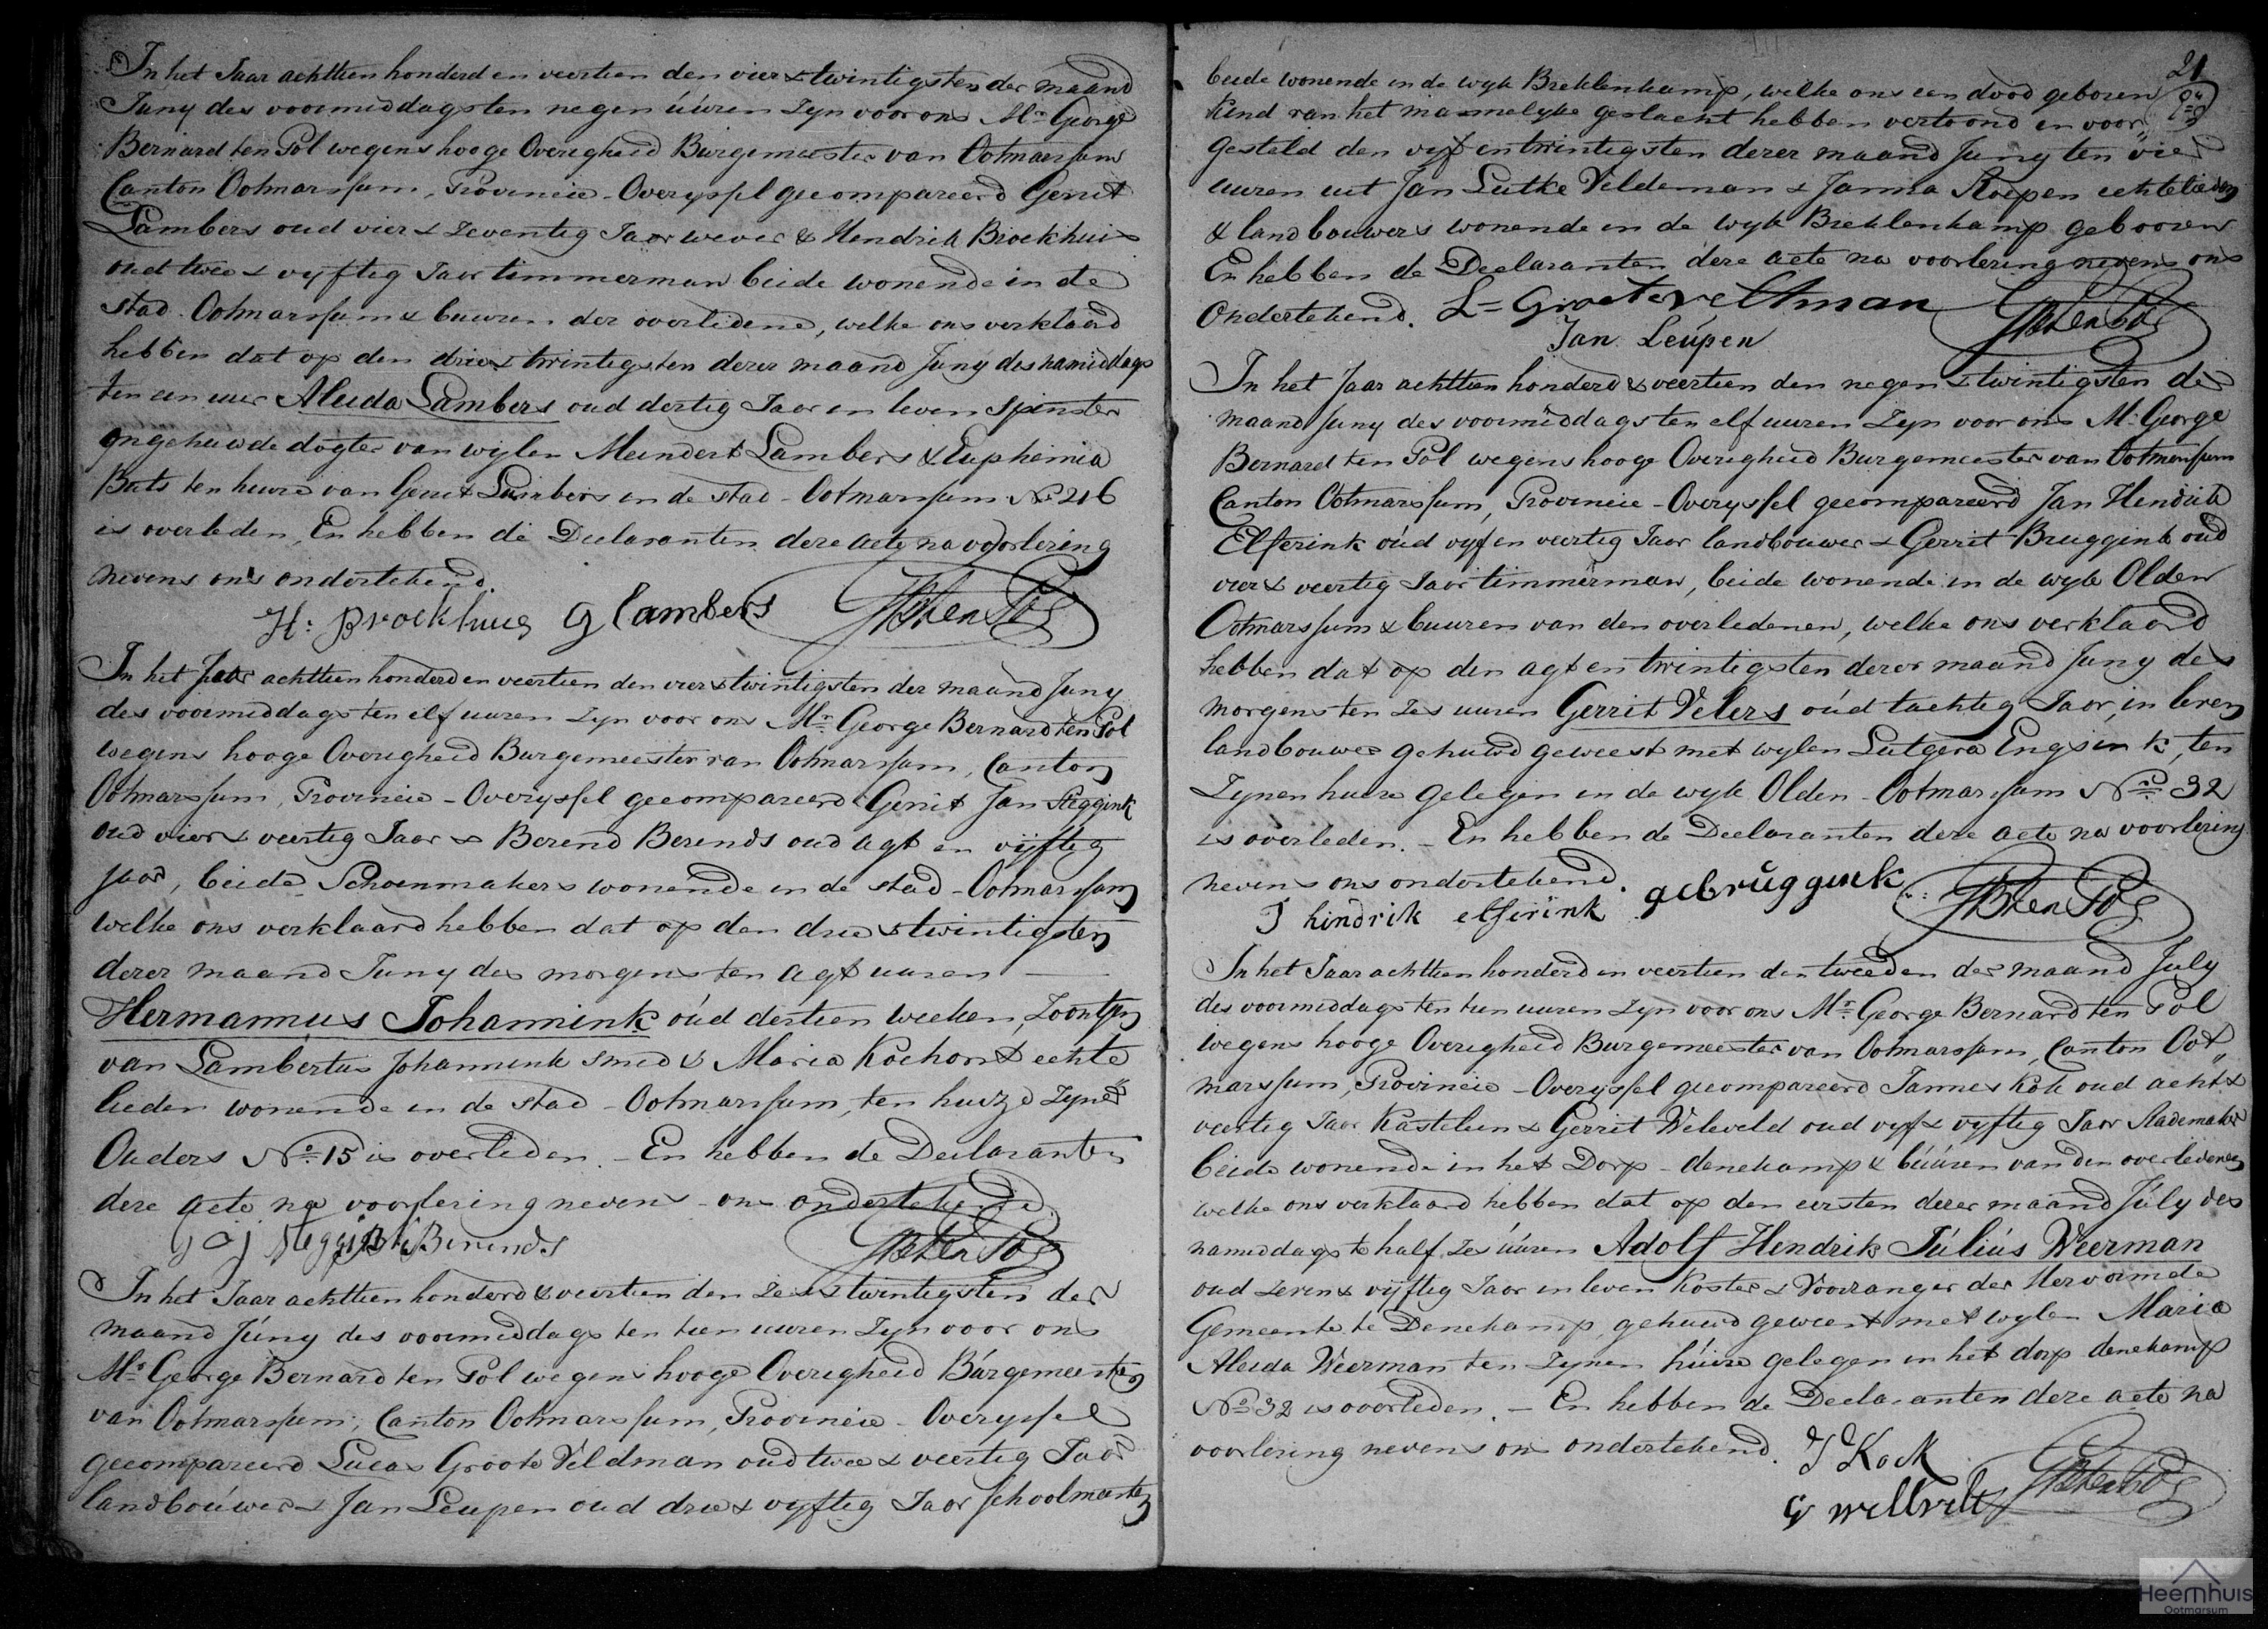 In het Jaar achttien honderd en veertien den vier & twintigsten der maand
Juny des voormiddags ten negen úúren zyn voor ons Mr. George
Bernard ten Pol wegens hooge Overigheid Burgemeester van Ootmarssum
Canton Ootmarssum, Provincie - Overyssel gecompareerd Gerrit
Lambers oud vier & zeventig Jaar wever & Hendrik Broekhuis
oud twee & vyftig Jaar timmerman beide wonende in de
stad Ootmarssum & buuren der overledene, welke ons verklaard
hebben dat op den drie & twintigsten dezer maand Juny des namiddags
ten een uur Aleida Lambers oud dertig Jaar in leven spinster
ongehuwde dogter van wylen Meindert Lambers & Euphemia
Bats ten huize van Gerrit Lambers in de stad - Ootmarssum No 216
is overleden, En hebben de Declaranten deze acte na voorlezing
nevens ons ondertekend.
H: Broekhuis G Lambers GBtenPol
In het Jaar achttien honderd en veertien den vier & twintigsten der maand Juny
des voormiddags ten elf uuren zyn voor ons Mr. George Bernard ten Pol
wegens hooge Overigheid Burgemeester van Ootmarssum, Canton
Ootmarssum, Provincie - Overyssel gecompareerd Gerrit Jan Steggink
oud vier & veertig Jaar & Berend Berends oud agt en vijftig
Jaar, beide Schoenmakers wonende in de stad - Ootmarssum
welke ons verklaard hebben dat op den drie & twintigsten
dezer maand Juny des morgens ten agt uuren
Hermannus Johannink oúd dertien weeken, zoontje
van Lambertus Johannink smid & Maria Kochorst echte
lieden wonende in de stad - Ootmarssum, ten huize zyner
Ouders No. 15 is overleden. - En hebben de Declaranten
deze acte na voorlezing nevens ons ondertekend.
G J Steggink B Berends GBtenPol
In het Jaar achttien honderd & veertien den zes & twintigsten der
maand Júny des voormiddags ten tien uuren zyn voor ons
Mr. George Bernard ten Pol wegens hooge Overigheid Búrgemeester
van Ootmarssum, Canton Ootmarssum, Provincie - Overyssel
gecompareerd Lucas Groote Veldman oud twee & veertig Jaar
landboúwer & Jan Leupen oud drie & vyftig Jaar schoolmeester
21
beide wonende in de wyk Breklenkamp, welke ons een dood geboren
kind van het mannelyke geslacht hebben vertoond en voor„
gesteld den vyf en twintigsten dezer maand Juny ten vier
uuren uit Jan Lutke Veldeman & Janna Roepen echtelieden
& landbouwers wonende in de wyk Breklenkamp gebooren
En hebben de Declaranten deze acte na voorlezing nevens ons
Ondertekend. L= Grooteveltman GBtenPol
Jan Leúpen
In het Jaar achttien honderd & veertien den negen & twintigsten der
maand Juny des voormiddags ten elf uuren zyn voor ons Mr. George
Bernard ten Pol wegens hooge Overigheid Burgemeester van Ootmarssum
Canton Ootmarssum, Provincie - Overyssel gecompareerd Jan Hendrik
Elferink oúd vyf en veertig Jaar landbouwer & Gerrit Bruggink oud
vier & veertig Jaar timmerman, beide wonende in de wyk Olden
Ootmarssum & buuren van den overledenen, welke ons verklaard
hebben dat op den agt en twintigsten dezer maand Juny des
morgens ten zes uuren Gerrit Velers oúd tachtig Jaar, in leven
landbouwer gehuwd geweest met wylen Lutgera Engsink, ten
Zynen huize gelegen in de wyk Olden - Ootmarssum No. 32
is overleden. - En hebben de Declaranten deze acte na voorlezing
nevens ons ondertekend. gebrúggink GBtenPol
J hindrik elferink
In het Jaar achttien honderd en veertien den tweeden der maand July
des voormiddags ten tien uuren zyn voor ons Mr. George Bernard ten Pol
wegens hooge Overigheid Burgemeester van Ootmarssum, Canton Oot„
marssum, Provincie - Overyssel gecompareerd Jannes Kok oud acht &
veertig Jaar Kastelein & Gerrit Welveld oud vyf & vyftig Jaar Rademaker
beide wonende in het Dorp - denekamp & búúren van den overledenen
welke ons verklaard hebben dat op den eersten dezer maand Júly des
namiddags te half zes úúren Adolf Hendrik Júliús Weerman
oud zeven & vijftig Jaar in leven Koster & Voorzanger der Hervormde
Gemeente te Denekamp, gehuwd geweest met wylen Maria
Aleida Weerman ten zynen húize gelegen in het dorp denekamp
No 32 is overleden. - En hebben de Declaranten deze acte na
voorlezing nevens ons ondertekend. J Kock
G Wellvelt GBtenPol
Heemhuis
Ootmarsum